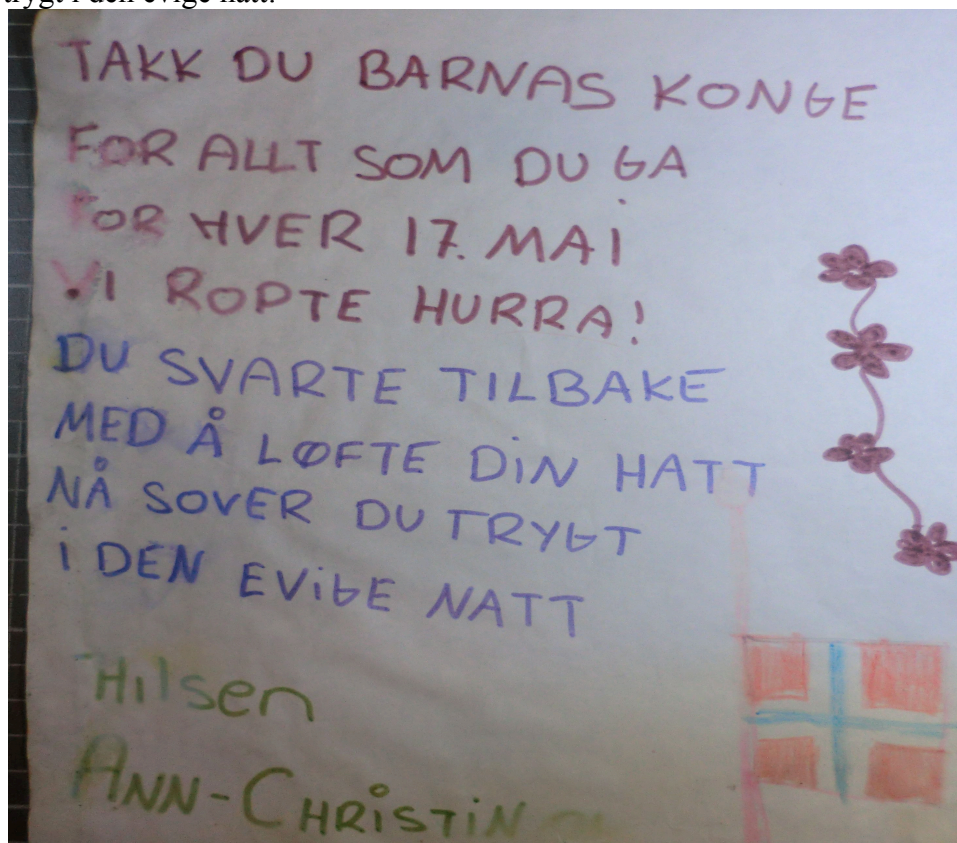 trygt i den evige natt.
TAKK DU BARNAS KONGE
FOR ALLT SOM DU GA
FOR HVER 17. MAI
VI ROPTE HURRA!
DU SVARTE TILBAKE
MED Å LØFTE DIN HATT
NÅ SOVER DU TRYGT
I DEN EVIGE NATT
Hilsen
ANN-CHRISTIN